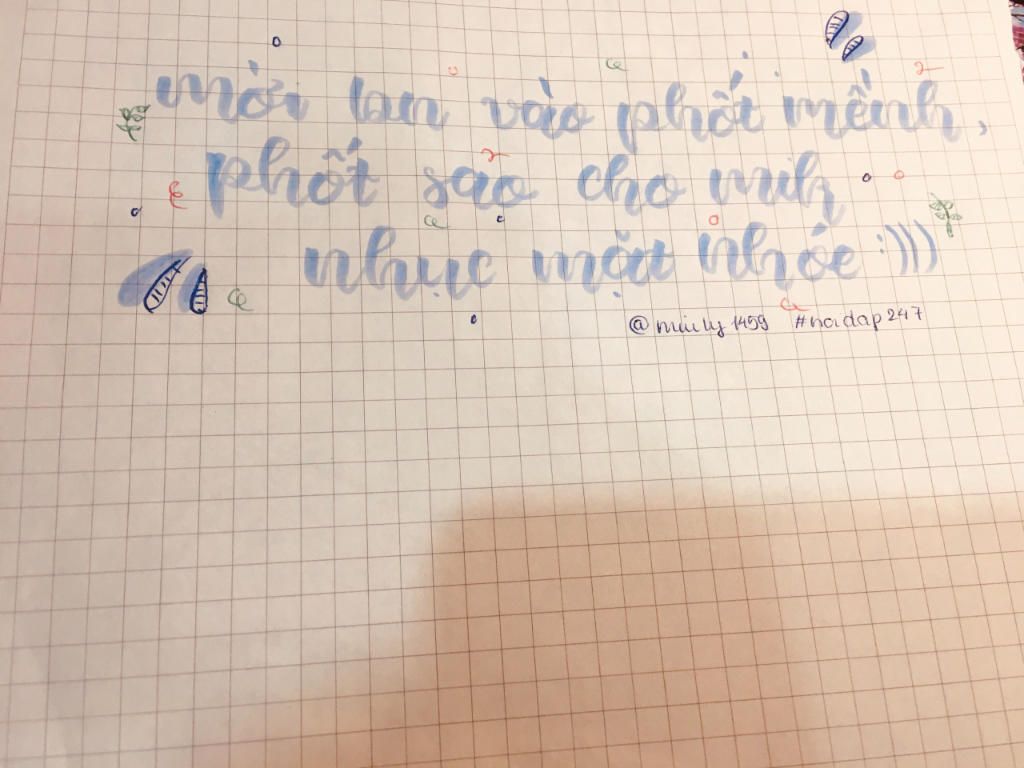 mời lan vào phốt mềnh,
phốt sao cho mik
nhục mặt nhóe :)))
@muly1459 #hoidap247